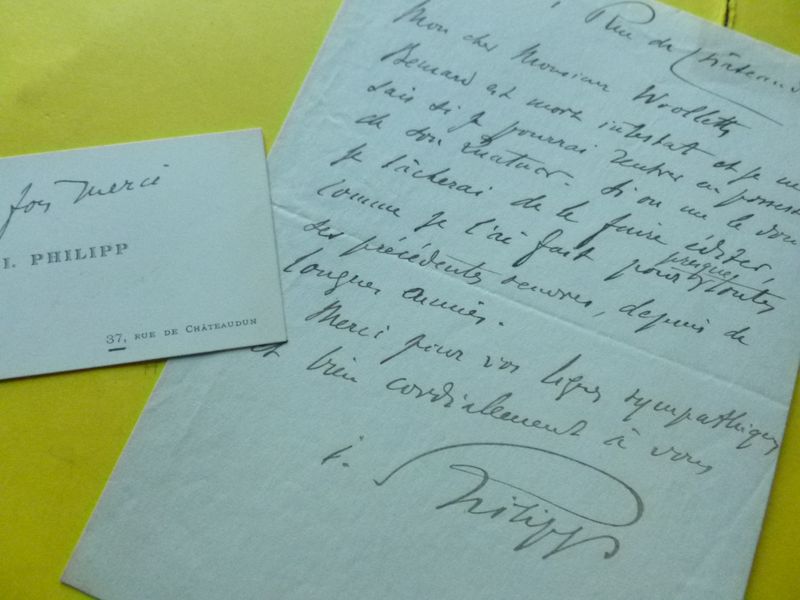 fois merci
I. PHILIPP
37, RUE DE CHÂTEAUDUN
Rue de Châteaudun
Mon cher Monsieur Woollett
Bernard est mort intestat et je ne
sais si je pourrai rentrer en possession
de son Quatuor. Si on me le donne
je tâcherai de le faire éditer,
comme je l'ai fait pour presque toutes
ses précédentes œuvres, depuis de
longues années.
Merci pour vos lignes sympathiques
et bien cordialement à vous
i. Philipp